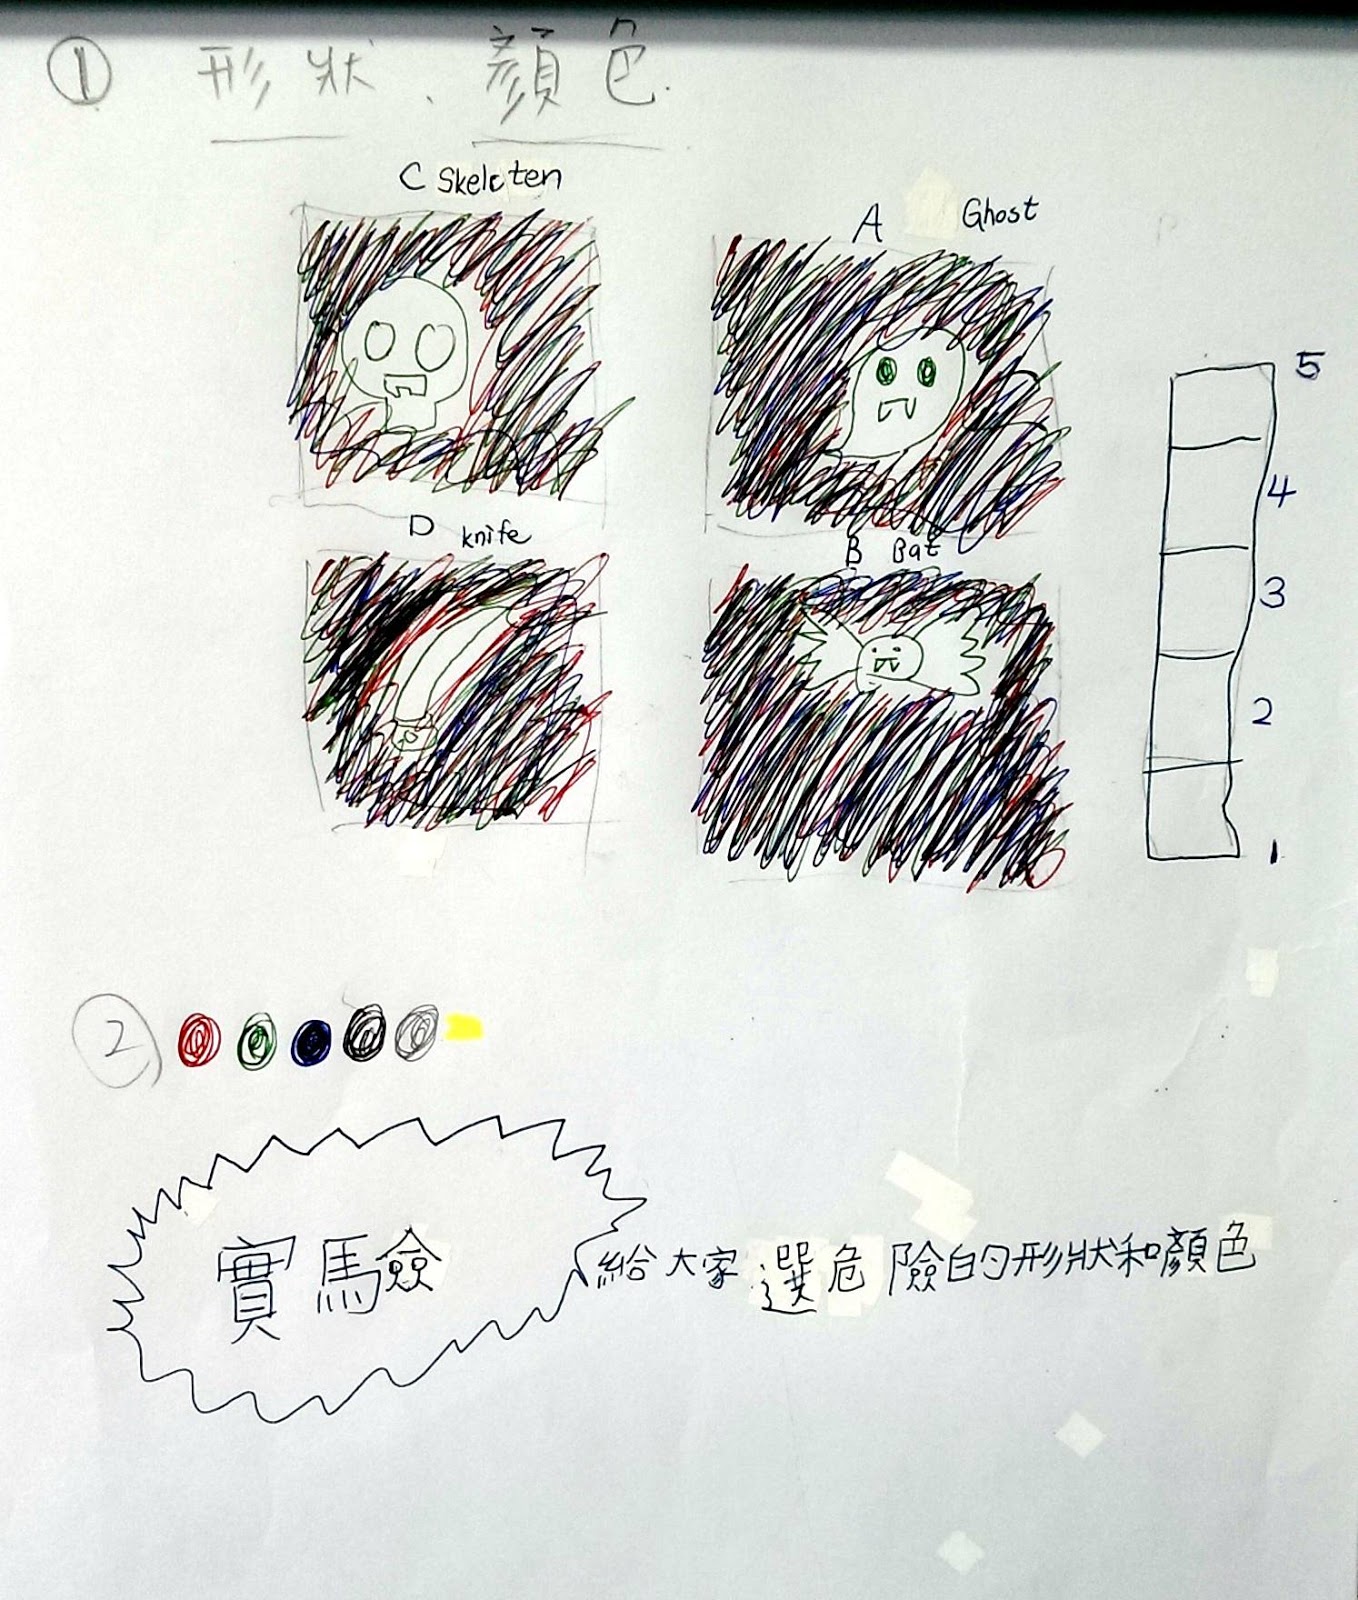 ① 形狀、顏色
C Skeleten
A Ghost
D knife
B Bat
5
4
3
2
1
②
實驗
給大家選危險的形狀和顏色